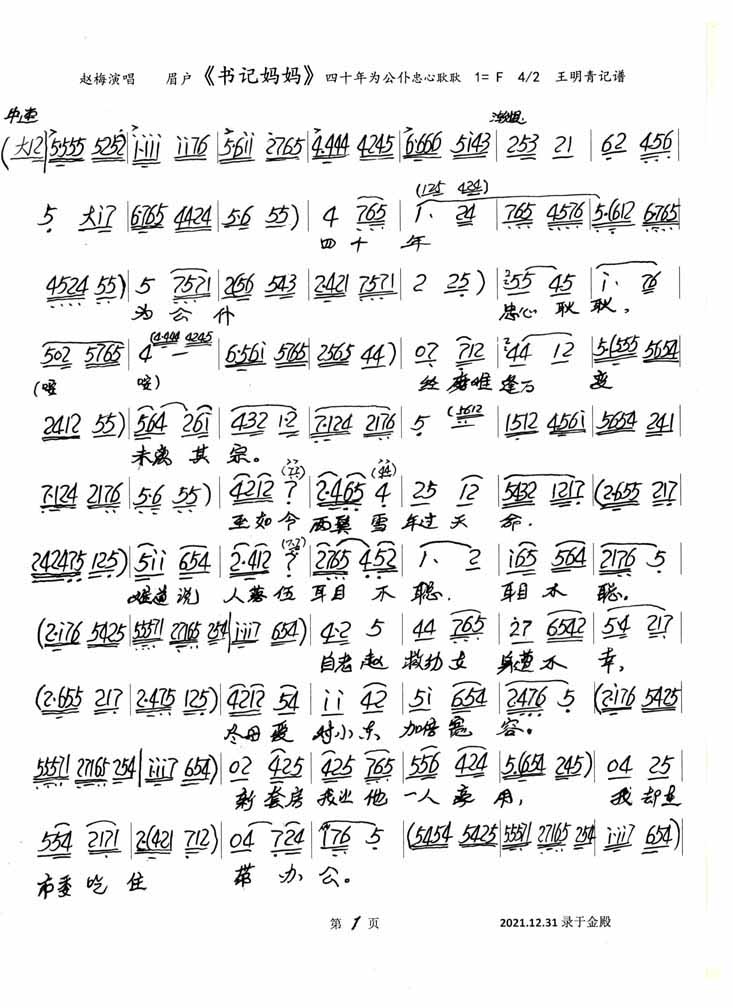 赵梅演唱 眉户《书记妈妈》四十年为公仆忠心耿耿 1= F 4/2 王明青记谱
中速
(大12 | 5555 5252 | 1·111 1176 | 5·611 2765 | 4·444 4245 | 6·666 5143 | 253 21 | 62 456 |
(125 424)
5 大17 | 6765 4424 | 5·6 55) | 4 765 | 1· 24 | 765 4576 | 5·(612 6765 |
四 十 年
4524 55) | 5 7571 | 2(56 543 | 2·421 7571 | 2 25) | 55 45 | i· 76 |
为 公 仆 忠心 耿 耿,
(4·444 4245
502 5765 | 4 — | 6·561 5765 | 2565 44) | 07 712 | 44 12 | 5·(555 5654 |
经 磨难 逢万 变
(5612
2412 55) | 564 261 | 432 12 | 7·124 2176 | 5 — | 1512 4561 | 5654 241 |
未离 其 宗。
7·124 2176 | 5·6 55) | 4212 7 | 2·465 4 | 25 12 | 5432 1217 | (2·655 217 |
至如今 两鬓 雪 年过 天 命.
242475 125) | 511 654 | 2·412 7 | 2765 452 | 1· 2 | i65 564 | 2176 5 |
难道说 人落伍 耳目 不 聪. 耳目 不 聪。
(2·176 5425 | 55571 27165 254 | i·117 654) | 4·2 5 | 44 765 | 27 6542 | 54 217 |
自老赵 救幼女 身遭不 幸,
(2·655 217 | 2·475 125) | 4212 54 | i i 42 | 5i 654 | 2476 5 | (2·176 5425 |
对小东 加倍宽 容。
55571 27165 254 | i·117 654) | 02 425 | 425 765 | 556 424 | 5·(654 245) | 04 25 |
新 套房 我让 他 一人 享 用, 我 却是
554 2171 | 2(421 712) | 04 724 | 176 5 | (5454 5425 | 55571 27165 254 | i·117 654) |
市委 吃 住 带 办 公。
第 1 页 2021.12.31 录于金殿